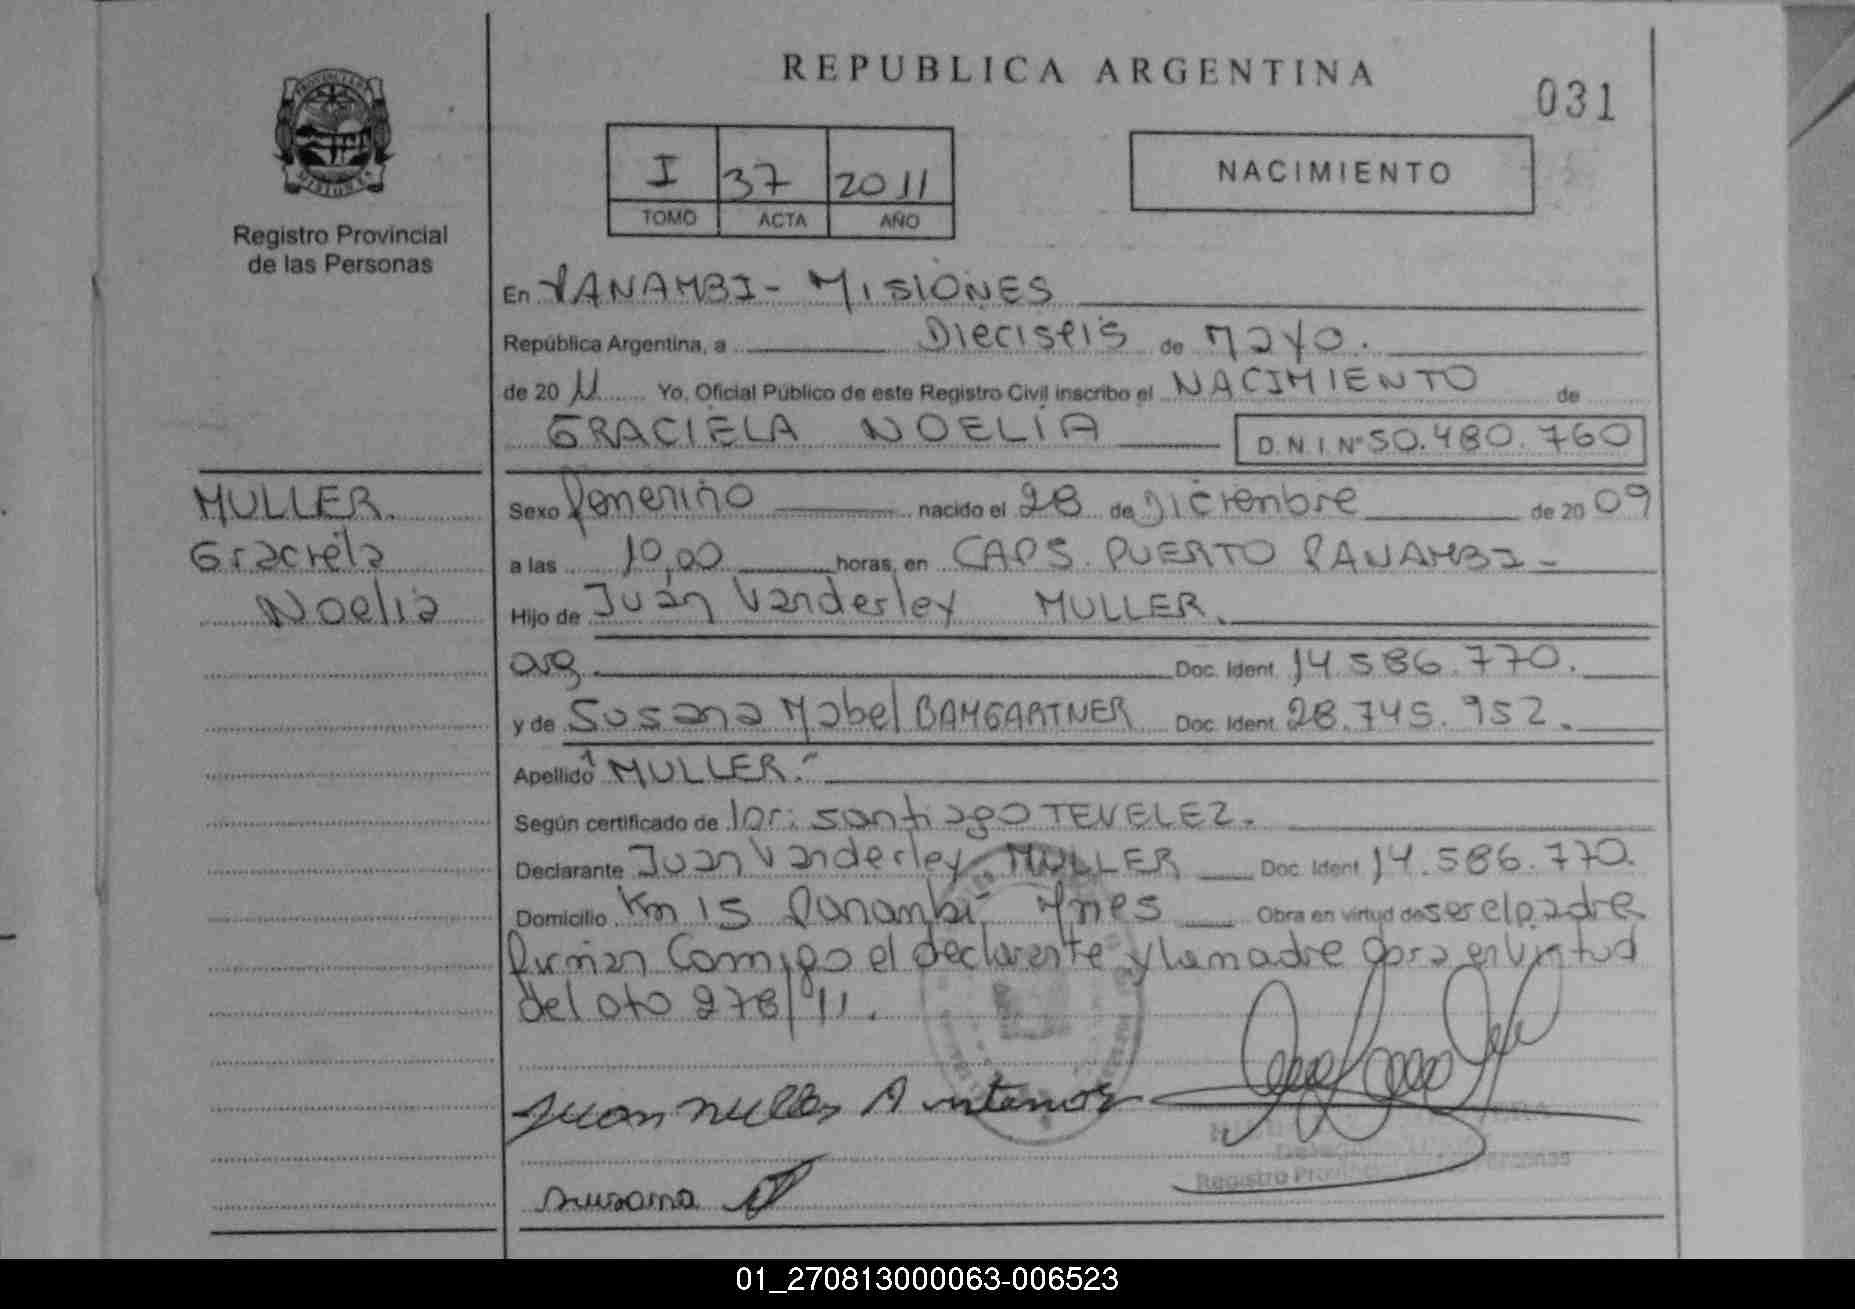 REPUBLICA ARGENTINA
031
I 37 2011
TOMO ACTA AÑO
NACIMIENTO
Registro Provincial
de las Personas
En PANAMBI - MISIONES
República Argentina, a Dieciseis de Mayo.
de 20 11 Yo, Oficial Público de este Registro Civil inscribo el NACIMIENTO de
GRACIELA NOELIA D.N.I. Nº 50.480.760
MULLER.
Graciela
Noelia
Sexo femenino nacido el 28 de Diciembre de 20 09
a las 10,00 horas, en CAPS. PUERTO PANAMBI -
Hijo de Juan Vanderley MULLER.
arg. Doc. Ident. 14.586.770.
y de Susana Mabel BAMGARTNER Doc. Ident. 28.745.952.
Apellido MULLER.
Según certificado de santiago TEVELEZ.
Declarante Juan Vanderley MULLER Doc. Ident. 14.586.770.
Domicilio Km 15 Panambi Mnes Obra en virtud de ser el padre
firman Conmigo el declarante y la madre obra en virtud
del 278/11.
Juan
Registro
01_270813000063-006523